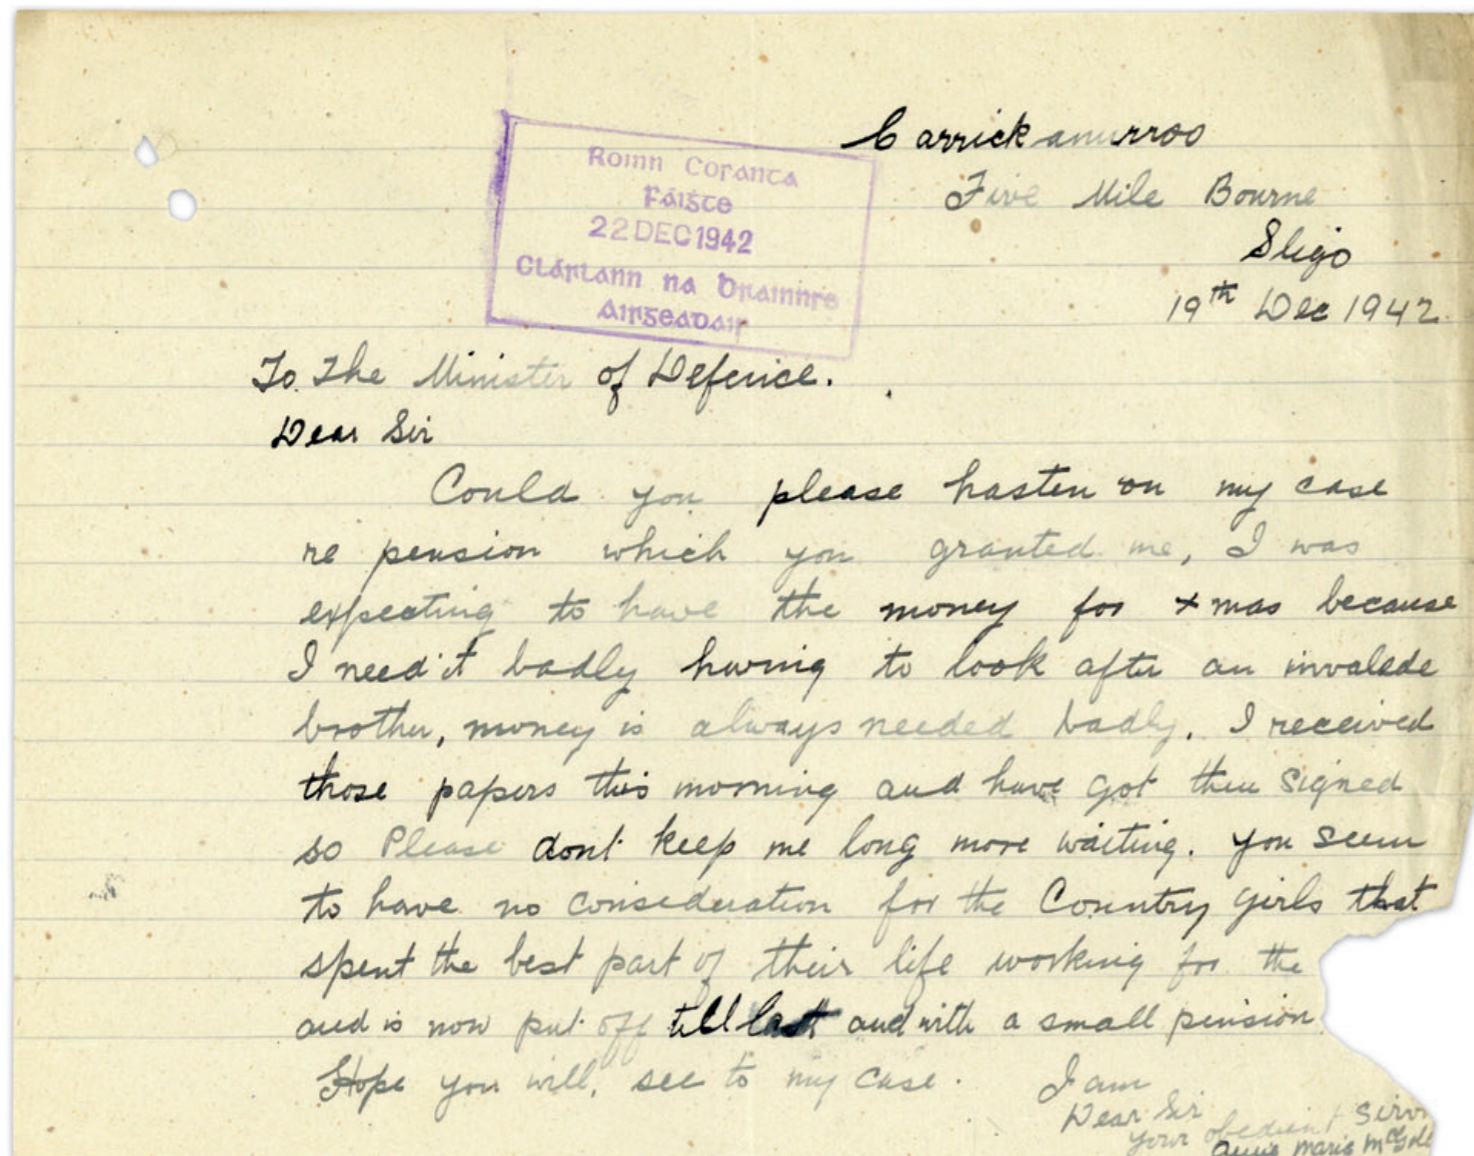 Roinn Cosanta
Fáiste
22 DEC 1942
Clárlann na
Airgeadair
Carrickanurroo
Five Mile Bourne
Sligo
19th Dec 1942.
To The Minister of Defence.
Dear Sir
Could you please hasten on my case
re pension which you granted me, I was
expecting to have the money for xmas because
I need it badly having to look after an invalede
brother, money is always needed badly. I received
those papers this morning and have got them signed
so Please dont keep me long more waiting. you seem
to have no consideration for the Country girls that
spent the best part of their life working for the
and is now put off till last and with a small pension
Hope you will, see to my case. I am
Dear Sir
your obedient
Annie Maria